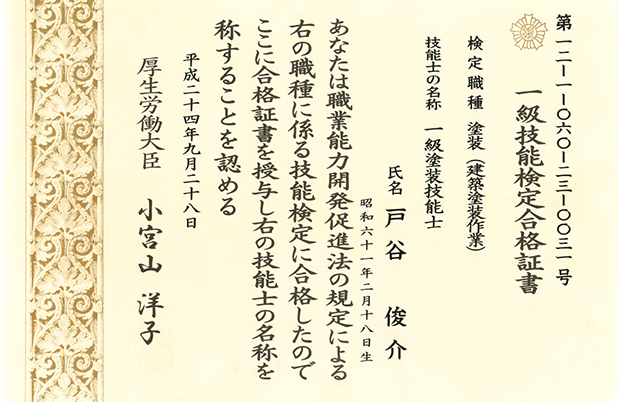 第一二ー一ー〇六〇ー二三ー〇〇三一号
一級技能検定合格証書
検定職種 塗装（建築塗装作業）
技能士の名称 一級塗装技能士
氏名 戸谷 俊介
昭和六十一年二月十八日生
あなたは職業能力開発促進法の規定による
右の職種に係る技能検定に合格したので
ここに合格証書を授与し右の技能士の名称を
称することを認める
平成二十四年九月二十八日
厚生労働大臣 小宮山 洋子